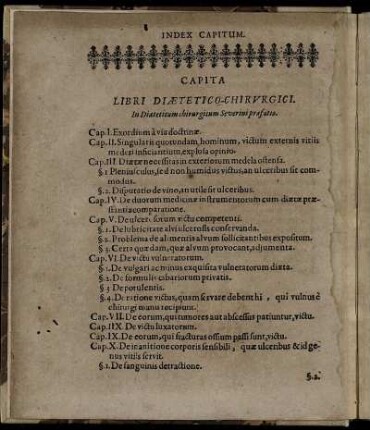 INDEX CAPITUM.
CAPITA
LIBRI DIÆTETICO-CHIRVRGICI.
In Diæteticum chirurgicum Severini præfatio.
Cap. I. Exordium à via doctrinæ.
Cap. II. Singularis quorundam, hominum, victum externis vitiis
mederi inficiantium, explosa opinio.
Cap. III Diætæ necessitas in exteriorum medela ostensa.
§. 1 Pleniusculus, sed non humidus victus, an ulceribus sit com-
modus.
§. 2. Disputatio de vino, an utile sit ulceribus.
Cap. IV. De duorum medicinæ instrumentorum cum diæta præ-
stantia comparatione.
Cap. V. De ulcerosorum victu competenti.
§. 1. De lubricitate alvi ulcerosis conservanda.
§. 2. Problema de alimentis alvum sollicitantibus expositum.
§. 3. Certa quædam, quæ alvum provocant, adjumenta.
Cap. VI. De victu vulneratorum.
§. 1. De vulgari ac minus exquisita vulneratorum diæta.
§. 2. De formulis cibariorum privatis.
§ 3 De potulentis.
§. 4. De ratione victus, quam servare debent hi, qui vulnus è
chirurgi manu recipiunt.
Cap. VII. De eorum, qui tumores aut abscessus patiuntur, victu.
Cap. IIX. De victu luxatorum.
Cap. IX. De eorum, qui fracturas ossium passi sunt, victu.
Cap. X. De inanitione corporis sensibili, quæ ulceribus & id ge-
nus vitiis servit.
§. 1. De sanguinis detractione.
§. 2.